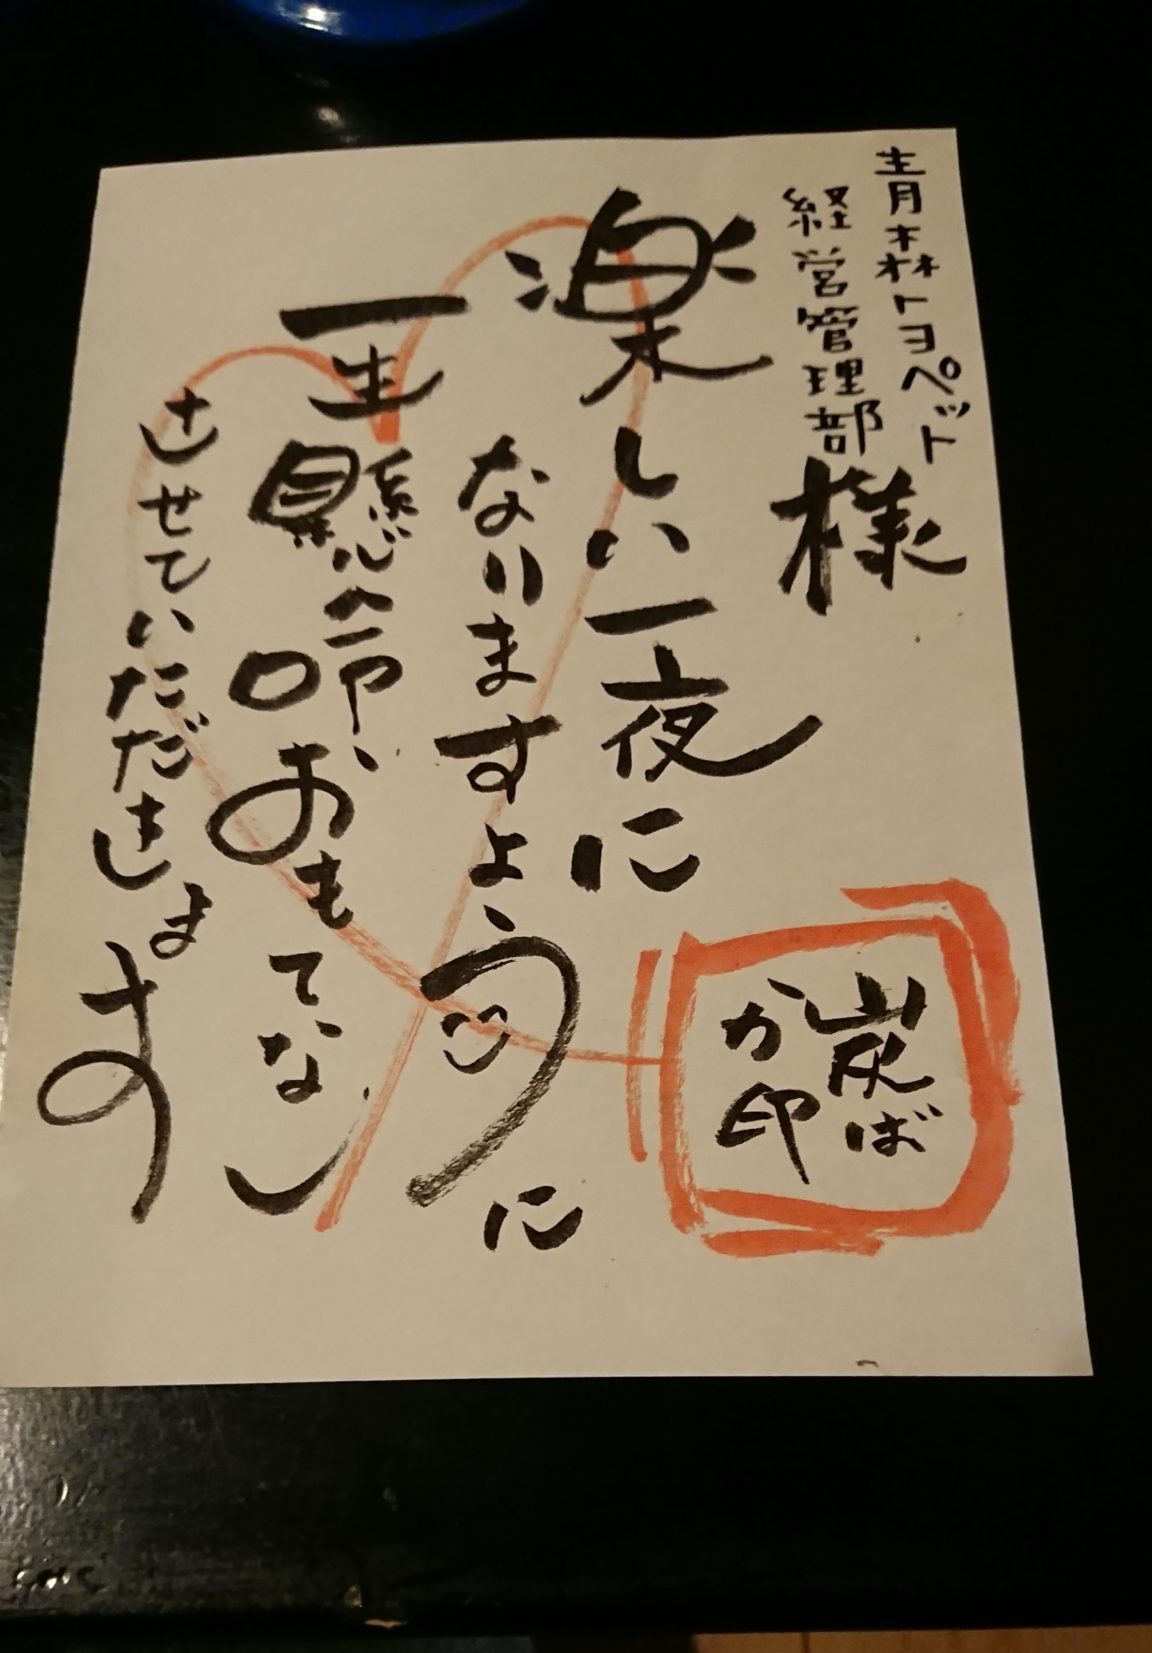 青森トヨペット
経営管理部
様
楽しい一夜に
なりますように
一生懸命、おもてなし
させていただきます
炭ば
か印